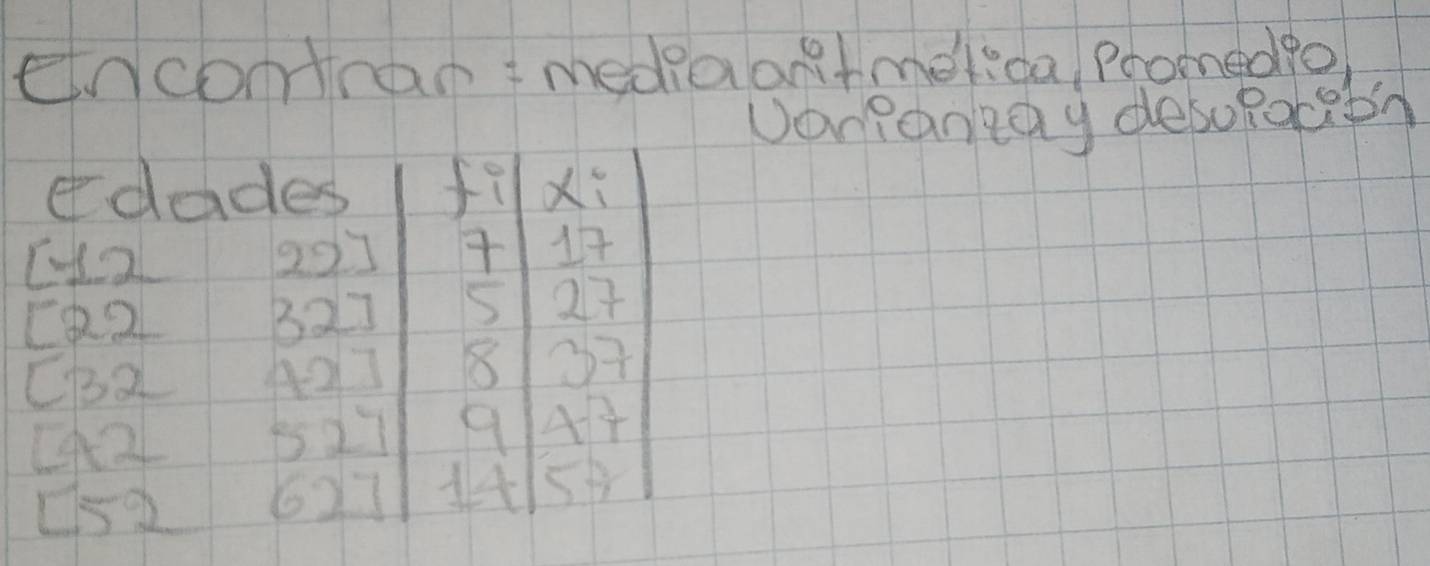 Encontrar: media aritmética, Promedio,
Varianza y desviación
edades | fi | xi
[12 22] | 7 | 17
[22 32] | 5 | 27
[32 42] | 8 | 37
[42 52] | 9 | 47
[52 62] | 14 | 57